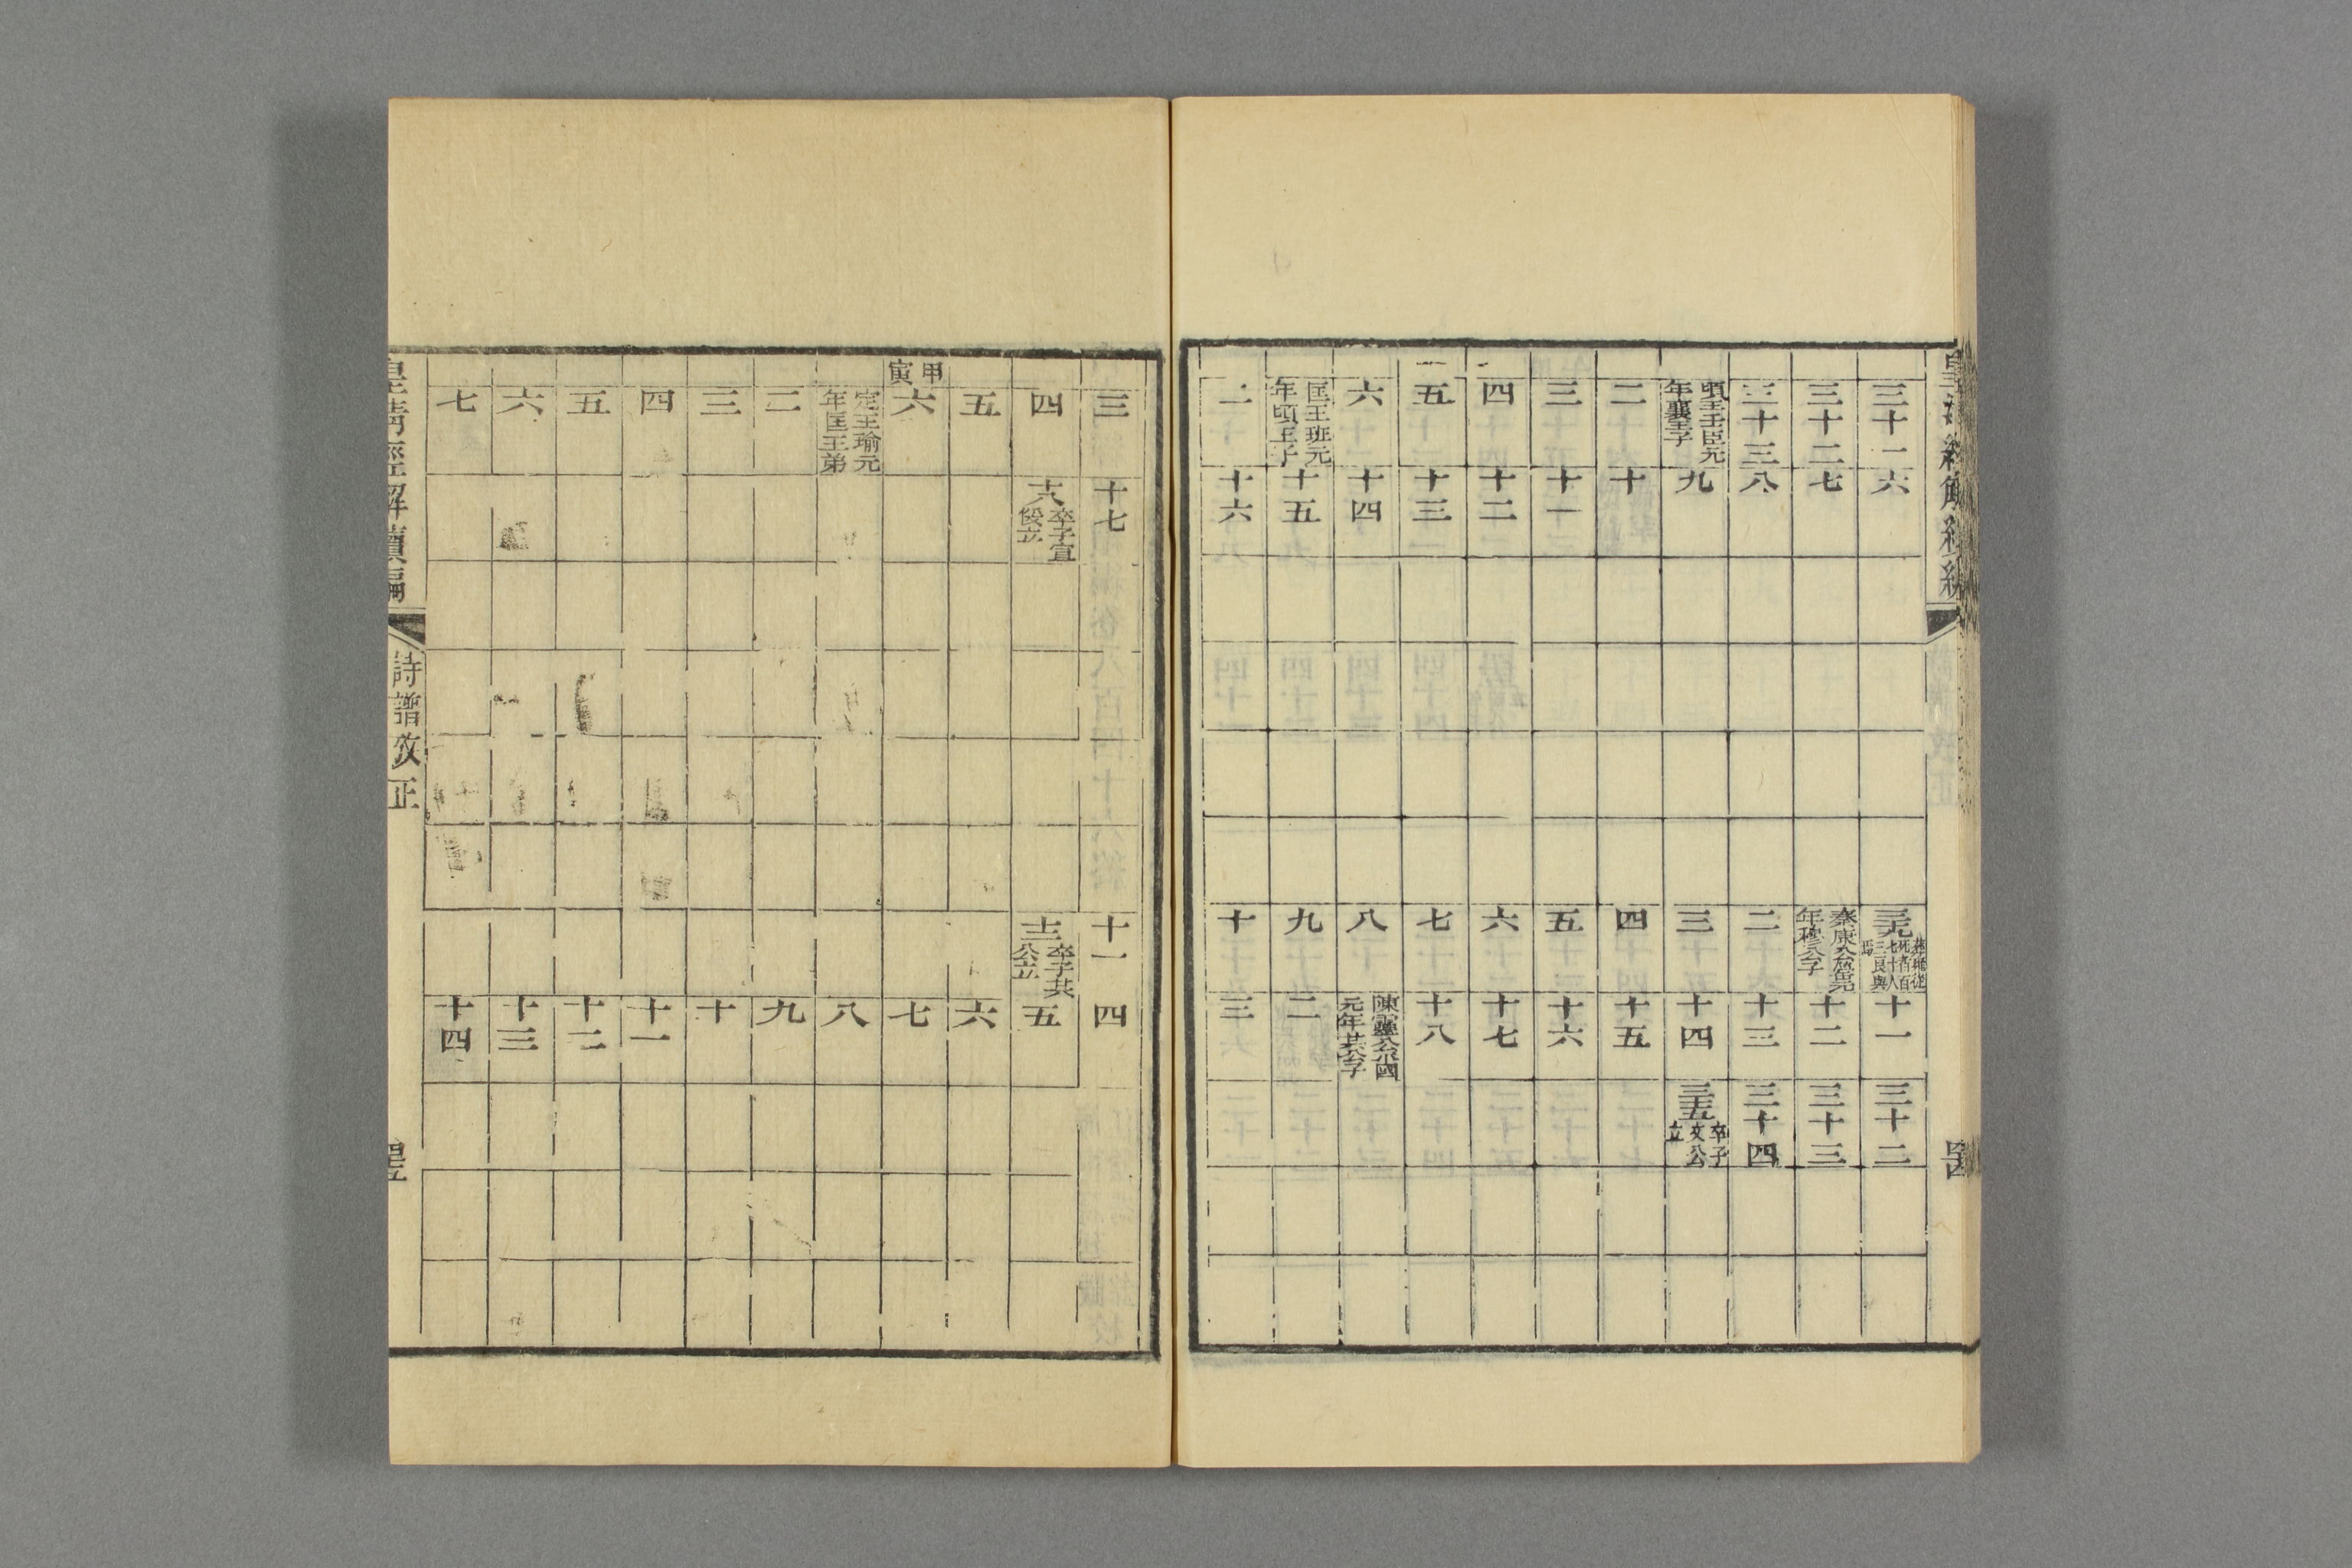 皇清經解續編
三十一
六
三十九
葬殉從
死者百
七十人
三良與
焉
十一
三十二
三十二
七
秦康公罃元
年穆公子
十二
三十三
三十三
八
二
十三
三十四
頃王壬臣元
年襄王子
九
三
十四
三十五
卒子
文公
立
二
十
四
十五
三
十一
五
十六
四
十二
六
十七
五
十三
七
十八
六
十四
八
陳靈公平國
元年共公子
匡王班元
年頃王子
十五
九
二
二
十六
十
三
三
十七
十一
四
四
十八
卒子宣
俀立
十二
卒子共
公立
五
五
六
甲寅
六
七
定王瑜元
年匡王弟
八
二
九
三
十
四
十一
五
十二
六
十三
七
十四
皇清經解續編
詩譜攷正